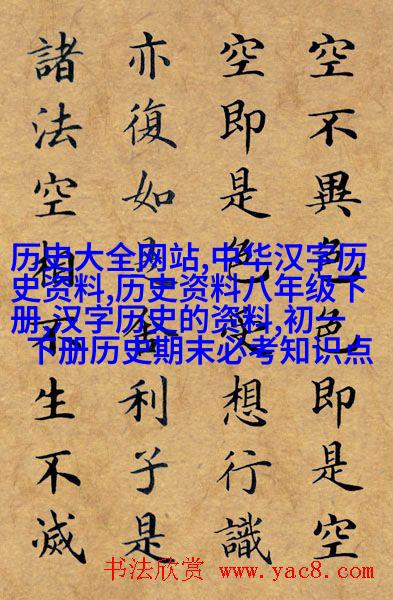 空不異色色即是空
空即是色受想行識
亦復如是舍利子是
諸法空相不生不滅
历史大全网站,中华汉字历
史资料,历史资料八年级下
册,汉字历史的资料,初一
下册历史期末必考知识点
书法欣赏 www.yac8.com